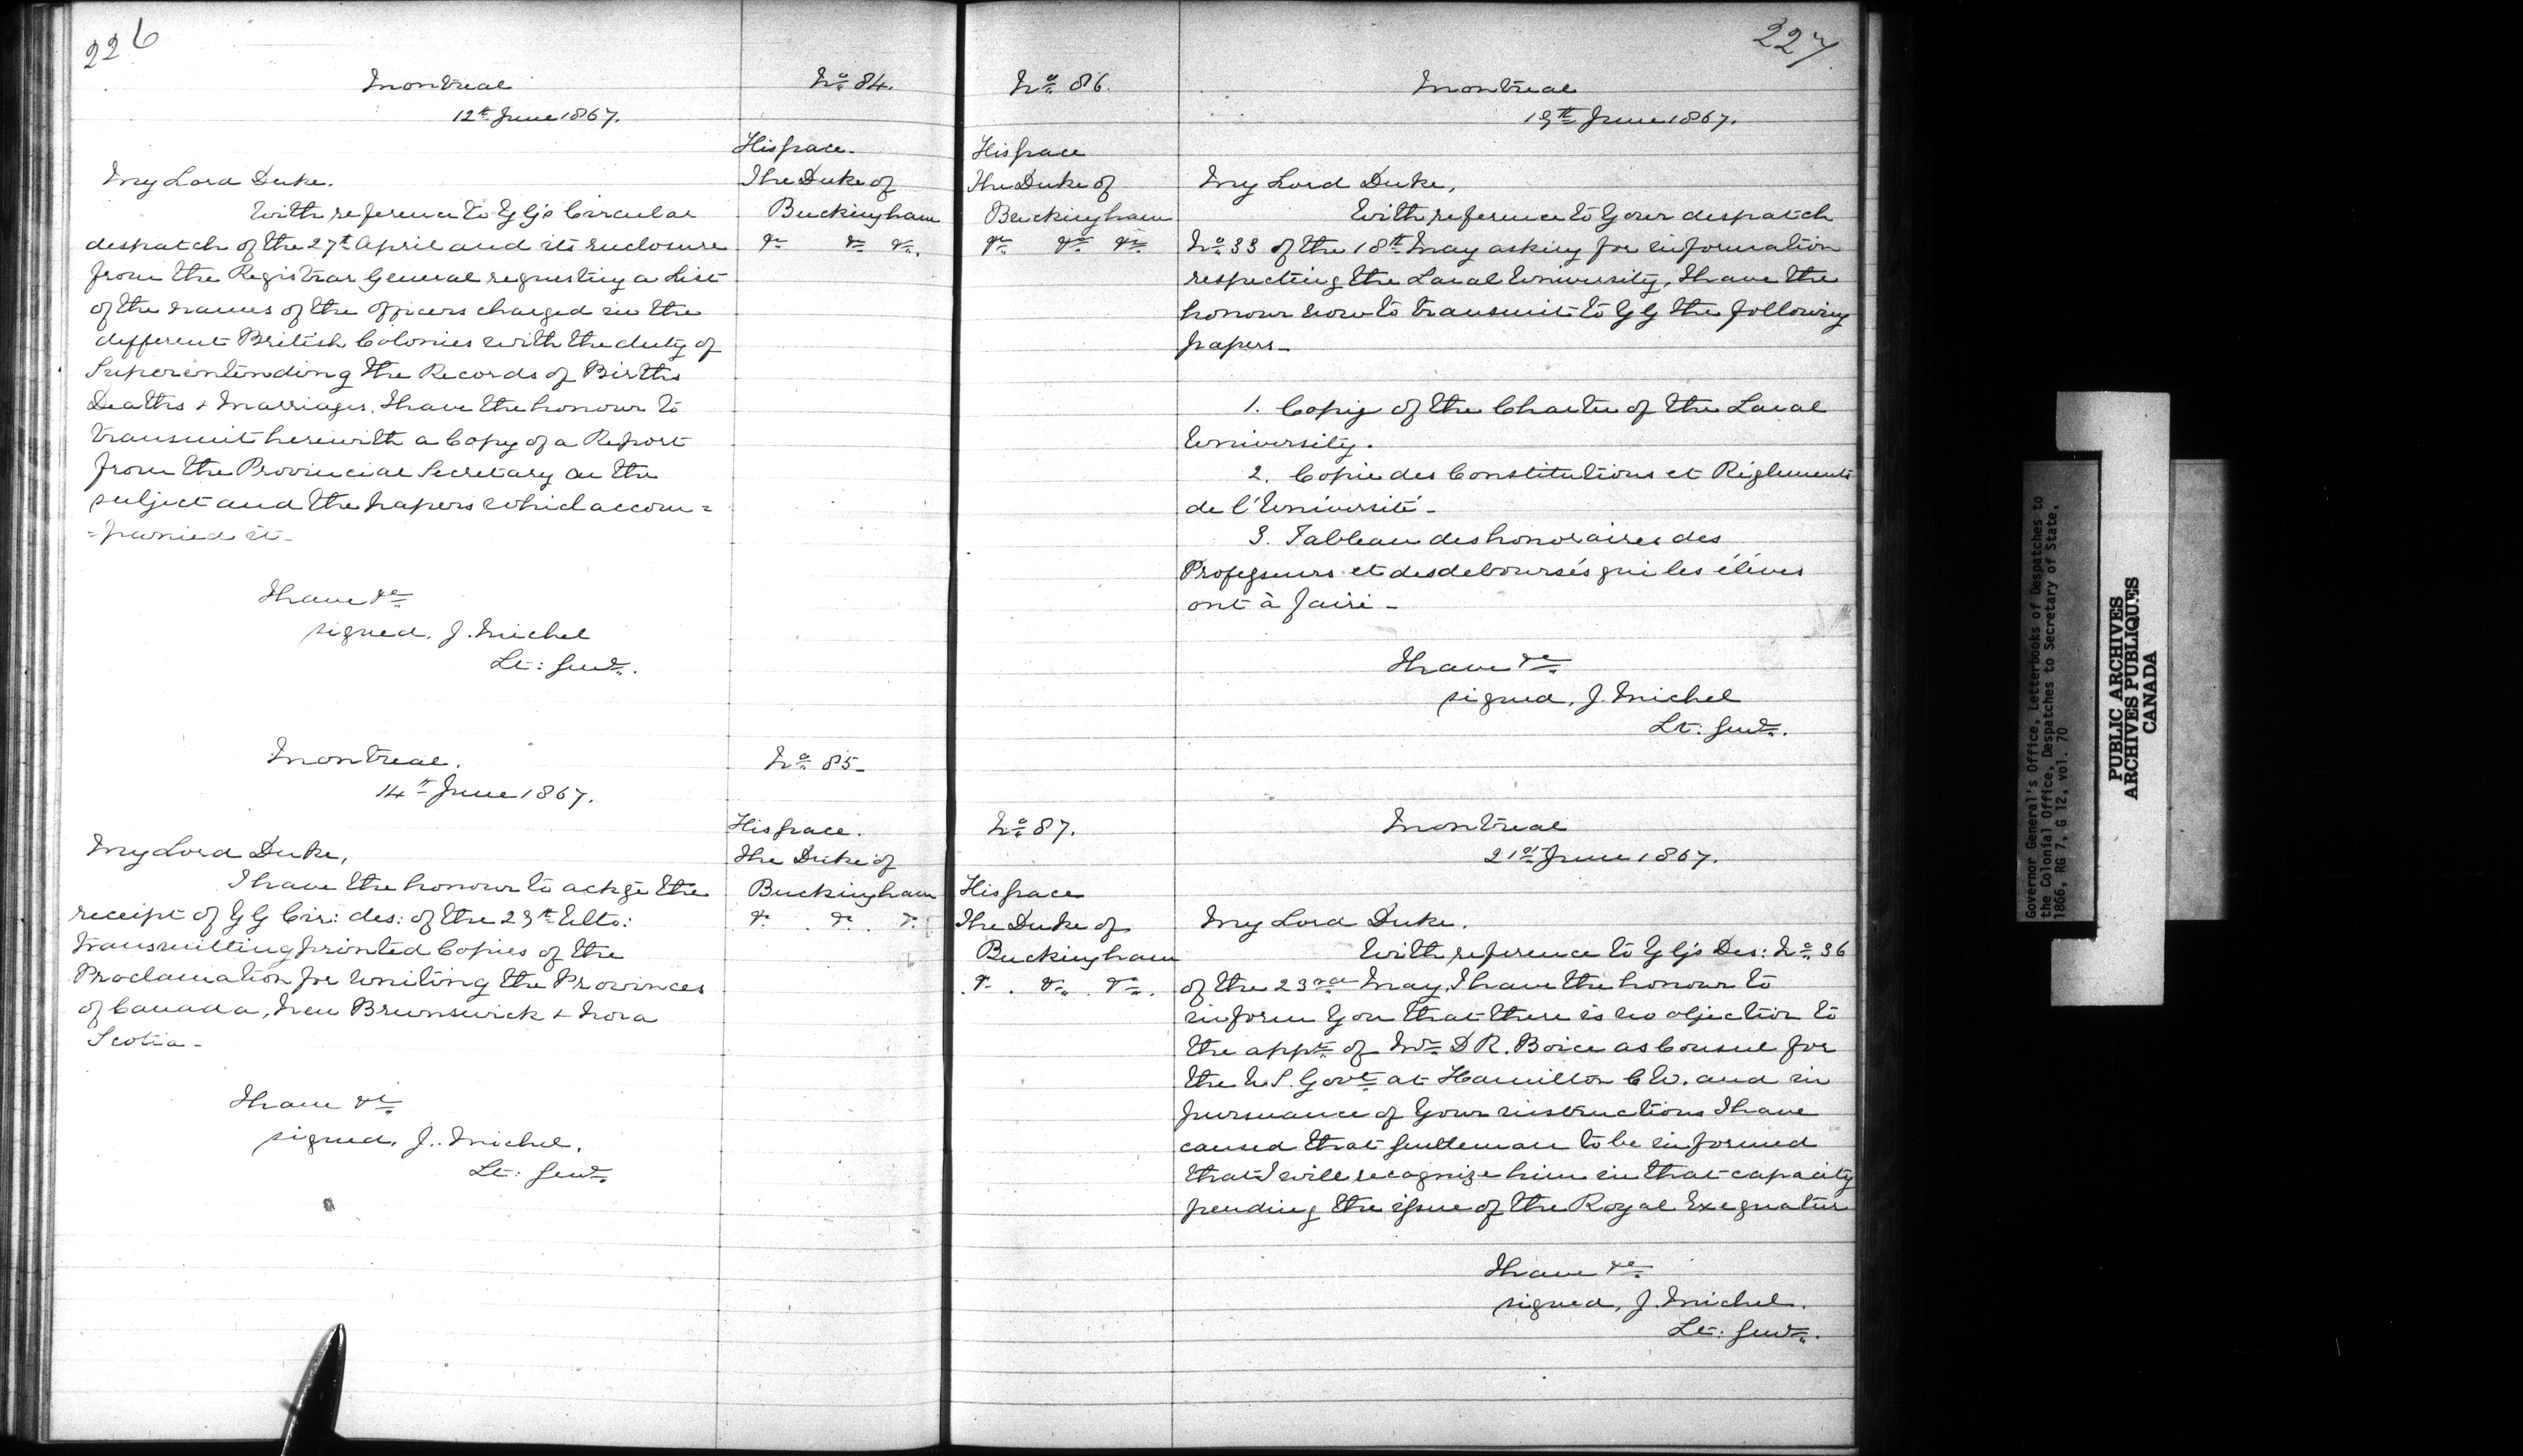 226
Montreal
12th June 1867.
No 84.
His Grace.
The Duke of
Buckingham
&c &c &c.
My Lord Duke.
With reference to Y G's Circular
despatch of the 27th April and its enclosure
from the Registrar General requesting a list
of the names of the Officers charged in the
different British Colonies with the duty of
Superintending the Records of Births
Deaths & Marriages. I have the honour to
transmit herewith a Copy of a Report
from the Provincial Secretary on the
subject and the papers which accom=
=panied it-
I have &c
signed, J. Michel
Lt: Genl.
Montreal.
14th June 1867.
No 85-
His Grace.
The Duke of
Buckingham
&c. &c. &c.
My Lord Duke,
I have the honour to ackge the
receipt of Y G Cir: des: of the 23rd Ulto:
transmitting printed Copies of the
Proclamation for Uniting the Provinces
of Canada, New Brunswick & Nova
Scotia-
I have &c
signed, J. Michel.
Lt: Genl.
227
No 86.
Montreal
19th June 1867.
His Grace
The Duke of
Buckingham
&c &c &c
My Lord Duke,
With reference to Your despatch
No 33 of the 18th May asking for information
respecting the Laval University, I have the
honour now to transmit to Y G the following
papers-
1. Copy of the Charter of the Laval
University.
2. Copie des Constitutions et Règlements
de l'Université-
3. Tableau des honoraires des
Professeurs et des deboursés qui les élèves
ont à faire-
I have &c
signed, J. Michel
Lt: Genl.
No 87.
Montreal
21st June 1867.
His Grace
The Duke of
Buckingham
&c. &c. &c.
My Lord Duke.
With reference to Y G's Des: No 36
of the 23rd May, I have the honour to
inform You that there is no objection to
the appt of Mr D R. Boice as Consul for
the U.S. Govt at Hamilton C W. and in
pursuance of Your instructions I have
caused that gentleman to be informed
that I will recognize him in that capacity
pending the issue of the Royal Exequatur
I have &c
signed, J. Michel.
Lt: Genl.
Governor General's Office, Letterbooks of Despatches to
the Colonial Office, Despatches to Secretary of State,
1866, RG 7, G 12, vol. 70
PUBLIC ARCHIVES
ARCHIVES PUBLIQUES
CANADA